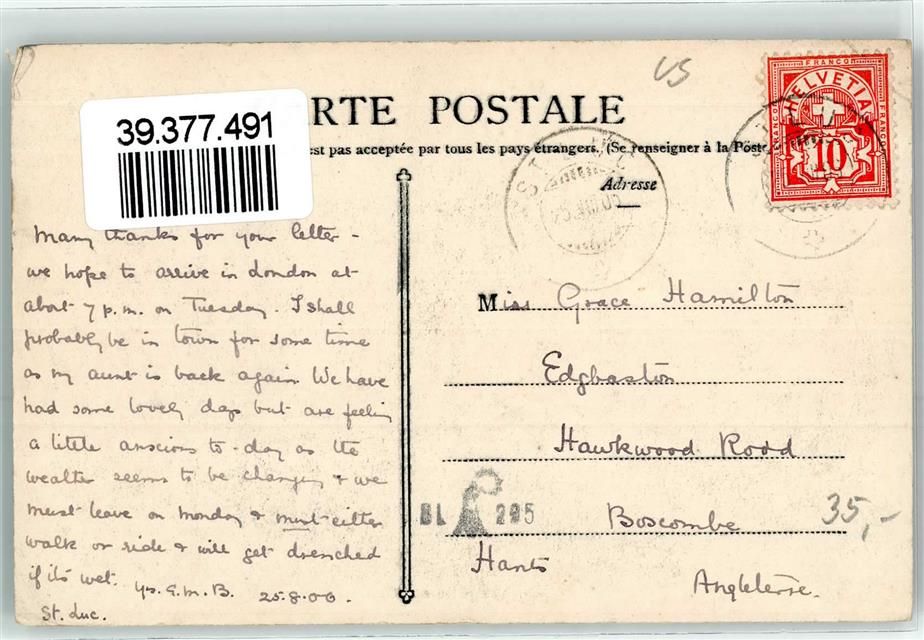 39.377.491
RTE POSTALE
est pas acceptée par tous les pays étrangers. (Se renseigner à la Poste
Adresse
FRANCO
HELVETIA
FRANCO
FRANCO
10
Many thanks for your letter -
we hope to arrive in London at
about 7 p.m. on Tuesday. I shall
probably be in town for some time
as my aunt is back again. We have
had some lovely days but are feeling
a little anscious to-day as the
weather seems to be changing & we
must leave on Monday & must either
walk or ride & will get drenched
if its wet. Yrs. E.M.B. 25.8.06.
St. Luc.
Miss Grace Hamilton
Edgbaston
Hawkwood Road
Boscombe
Hants
Angleterre.
BL 295
35,-